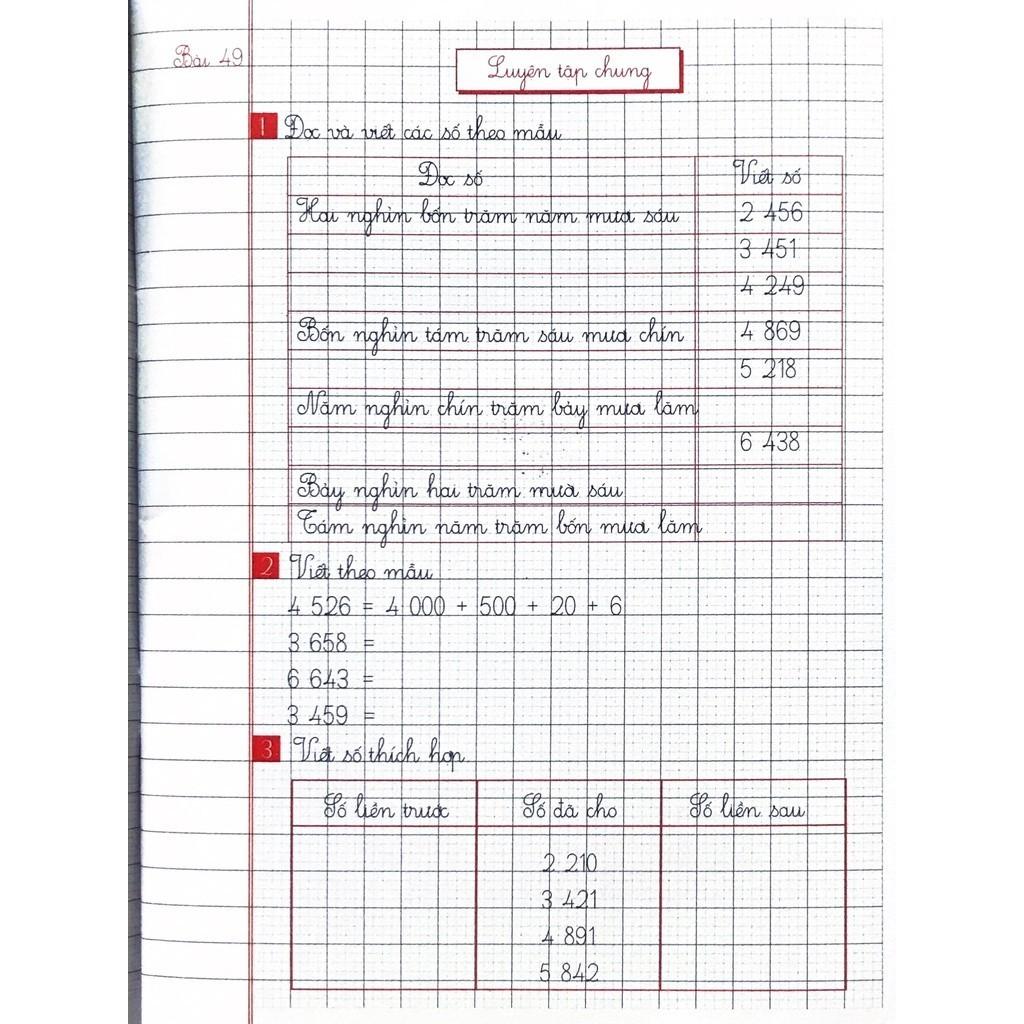 Bài 49
Luyện tập chung
1 Đọc và viết các số theo mẫu
Đọc số Viết số
Hai nghìn bốn trăm năm mươi sáu 2 456
3 451
4 249
Bốn nghìn tám trăm sáu mươi chín 4 869
5 218
Năm nghìn chín trăm bảy mươi lăm
6 438
Bảy nghìn hai trăm mười sáu
Tám nghìn năm trăm bốn mươi lăm
2 Viết theo mẫu
4 526 = 4 000 + 500 + 20 + 6
3 658 =
6 643 =
3 459 =
3 Viết số thích hợp
Số liền trước Số đã cho Số liền sau
2 210
3 421
4 891
5 842